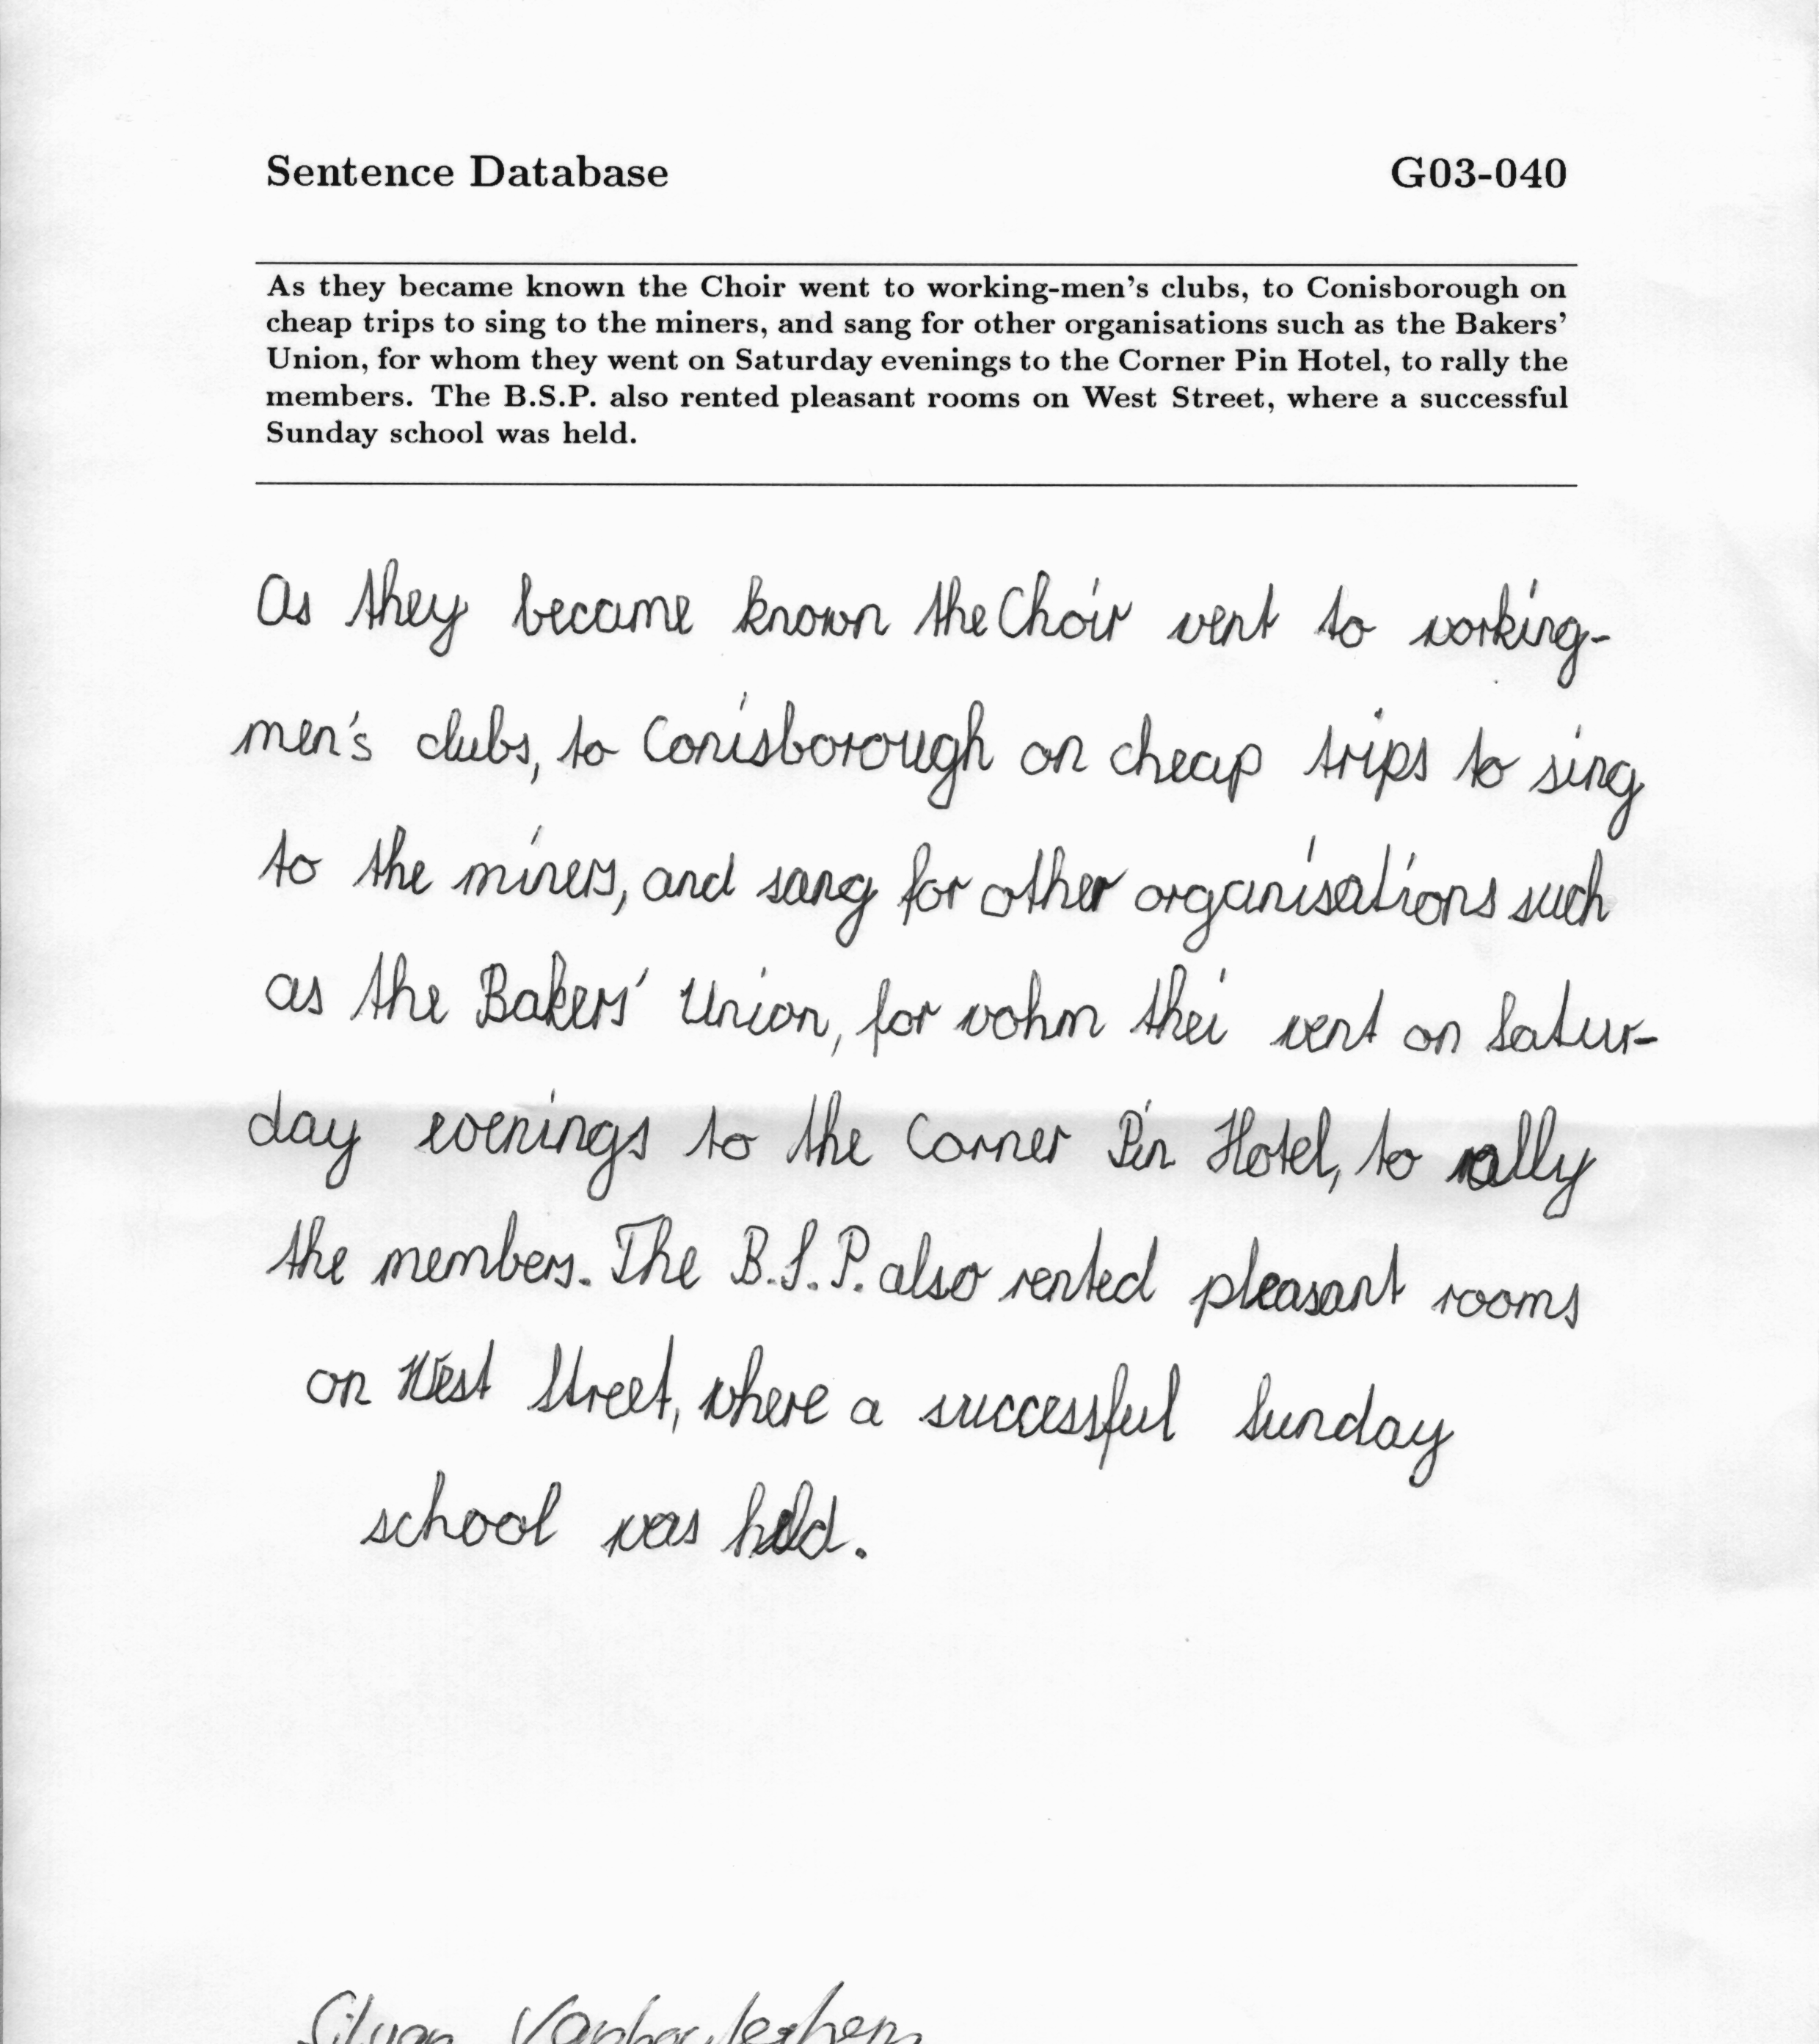 Sentence Database G03-040
As they became known the Choir went to working-men's clubs, to Conisborough on
cheap trips to sing to the miners, and sang for other organisations such as the Bakers'
Union, for whom they went on Saturday evenings to the Corner Pin Hotel, to rally the
members. The B.S.P. also rented pleasant rooms on West Street, where a successful
Sunday school was held.
As they became known the Choir went to working-
men's clubs, to Conisborough on cheap trips to sing
to the miners, and sang for other organisations such
as the Bakers' Union, for wohm thei went on Satur-
day evenings to the Corner Pin Hotel, to rally
the members. The B.S.P. also rented pleasant rooms
on West Street, where a successful Sunday
school was held.